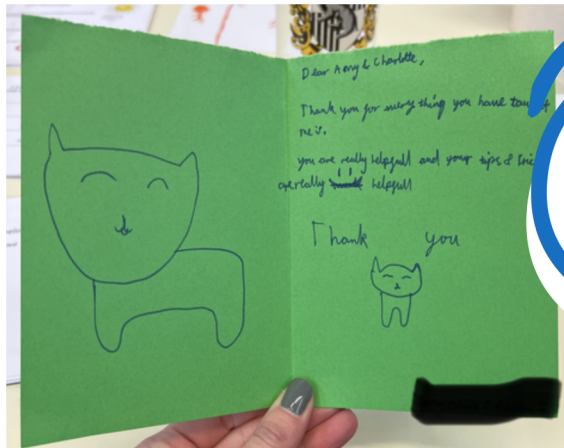 Dear Amy & Charlotte,
Thank you for every thing you have
me is.
you are really helpfull and your tips &
are really helpfull
Thank you